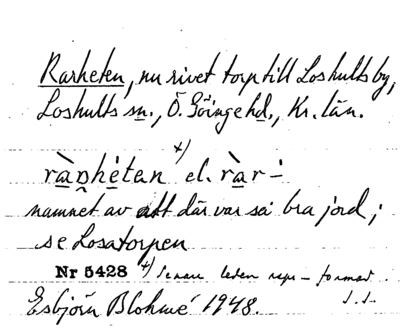 Rarheten, nu rivet torp till Loshults by,
Loshults sn., Ö. Göinge hd., Kr. län.
+)
ràrhètan el. ràr-
namnet av att där var så bra jord;
se Losatorpen
Nr 5428 +) Senare leden repr. - format.
Esbjörn Blohmé 1948. S.S.